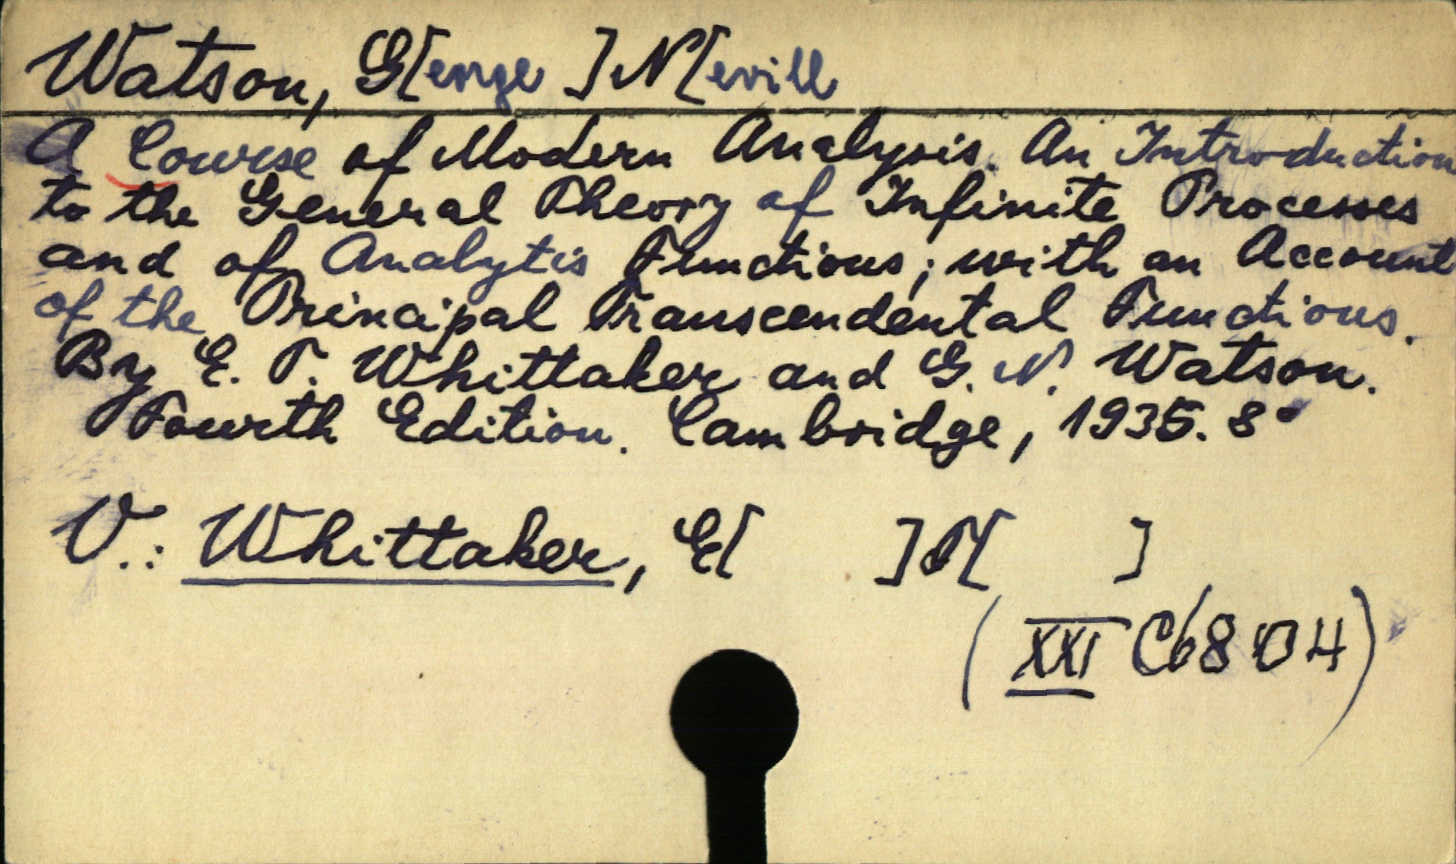 Watson, G[eorge ] N[evill
A Course of Modern Analysis. An Introduction
to the General Theory of Infinite Processes
and of Analytis Functions; with an Account
of the Principal Transcendental Functions.
By E. T. Whittaker and G. N. Watson.
Fourth Edition. Cambridge, 1935. 8°
V.: Whittaker, E[ ] T[ ]
(XXI C68 D4)